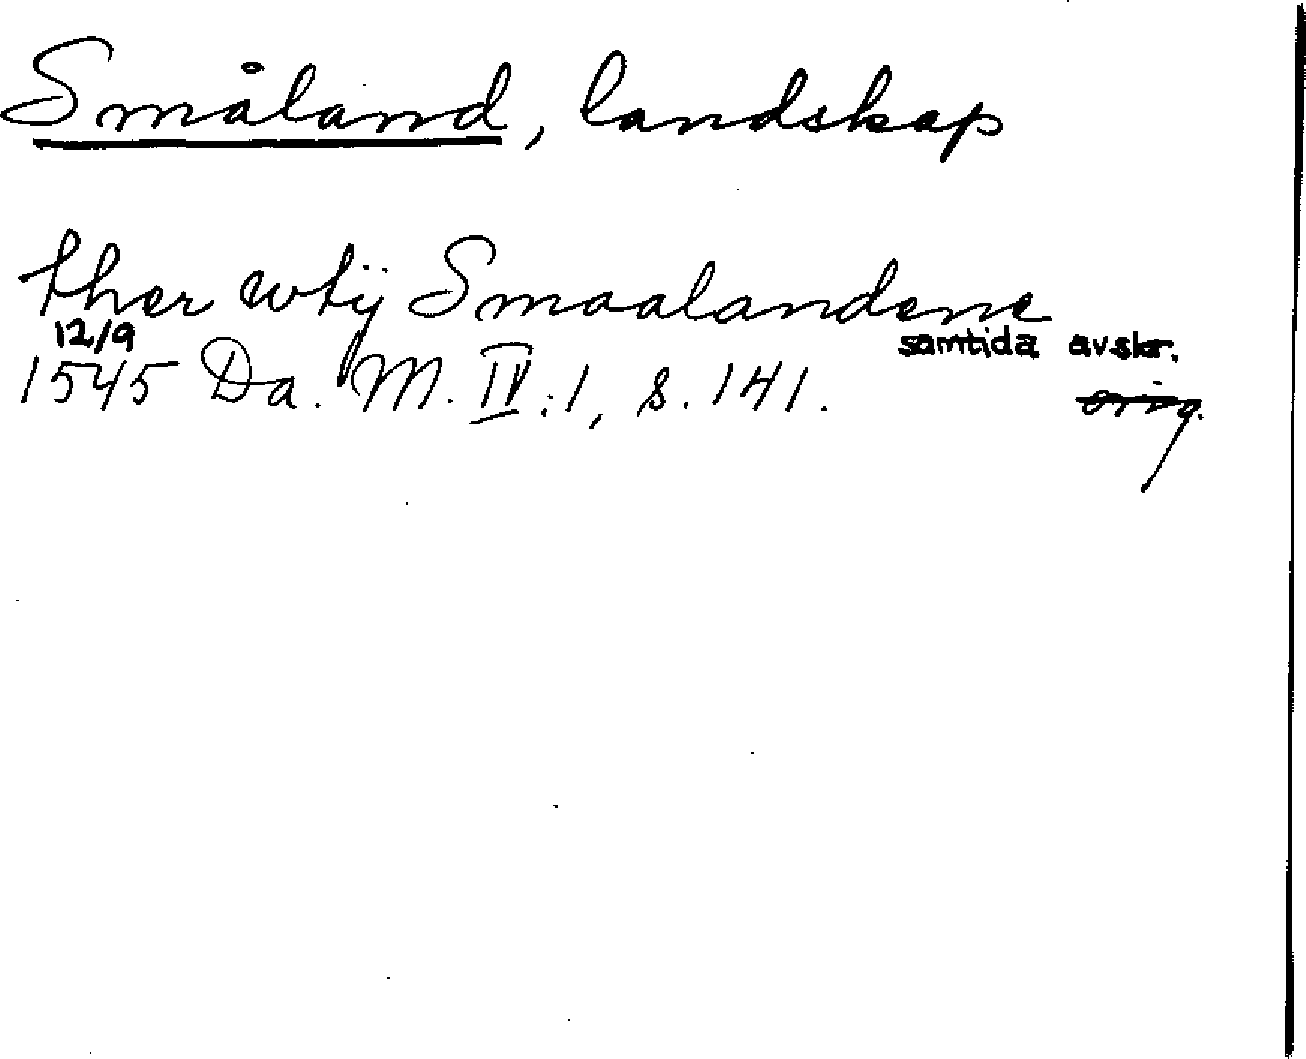 Småland, landskap
ther wtÿ Smaalandene
12/9 samtida avskr.
1545 Da. M. IV:1, s. 141. orig.